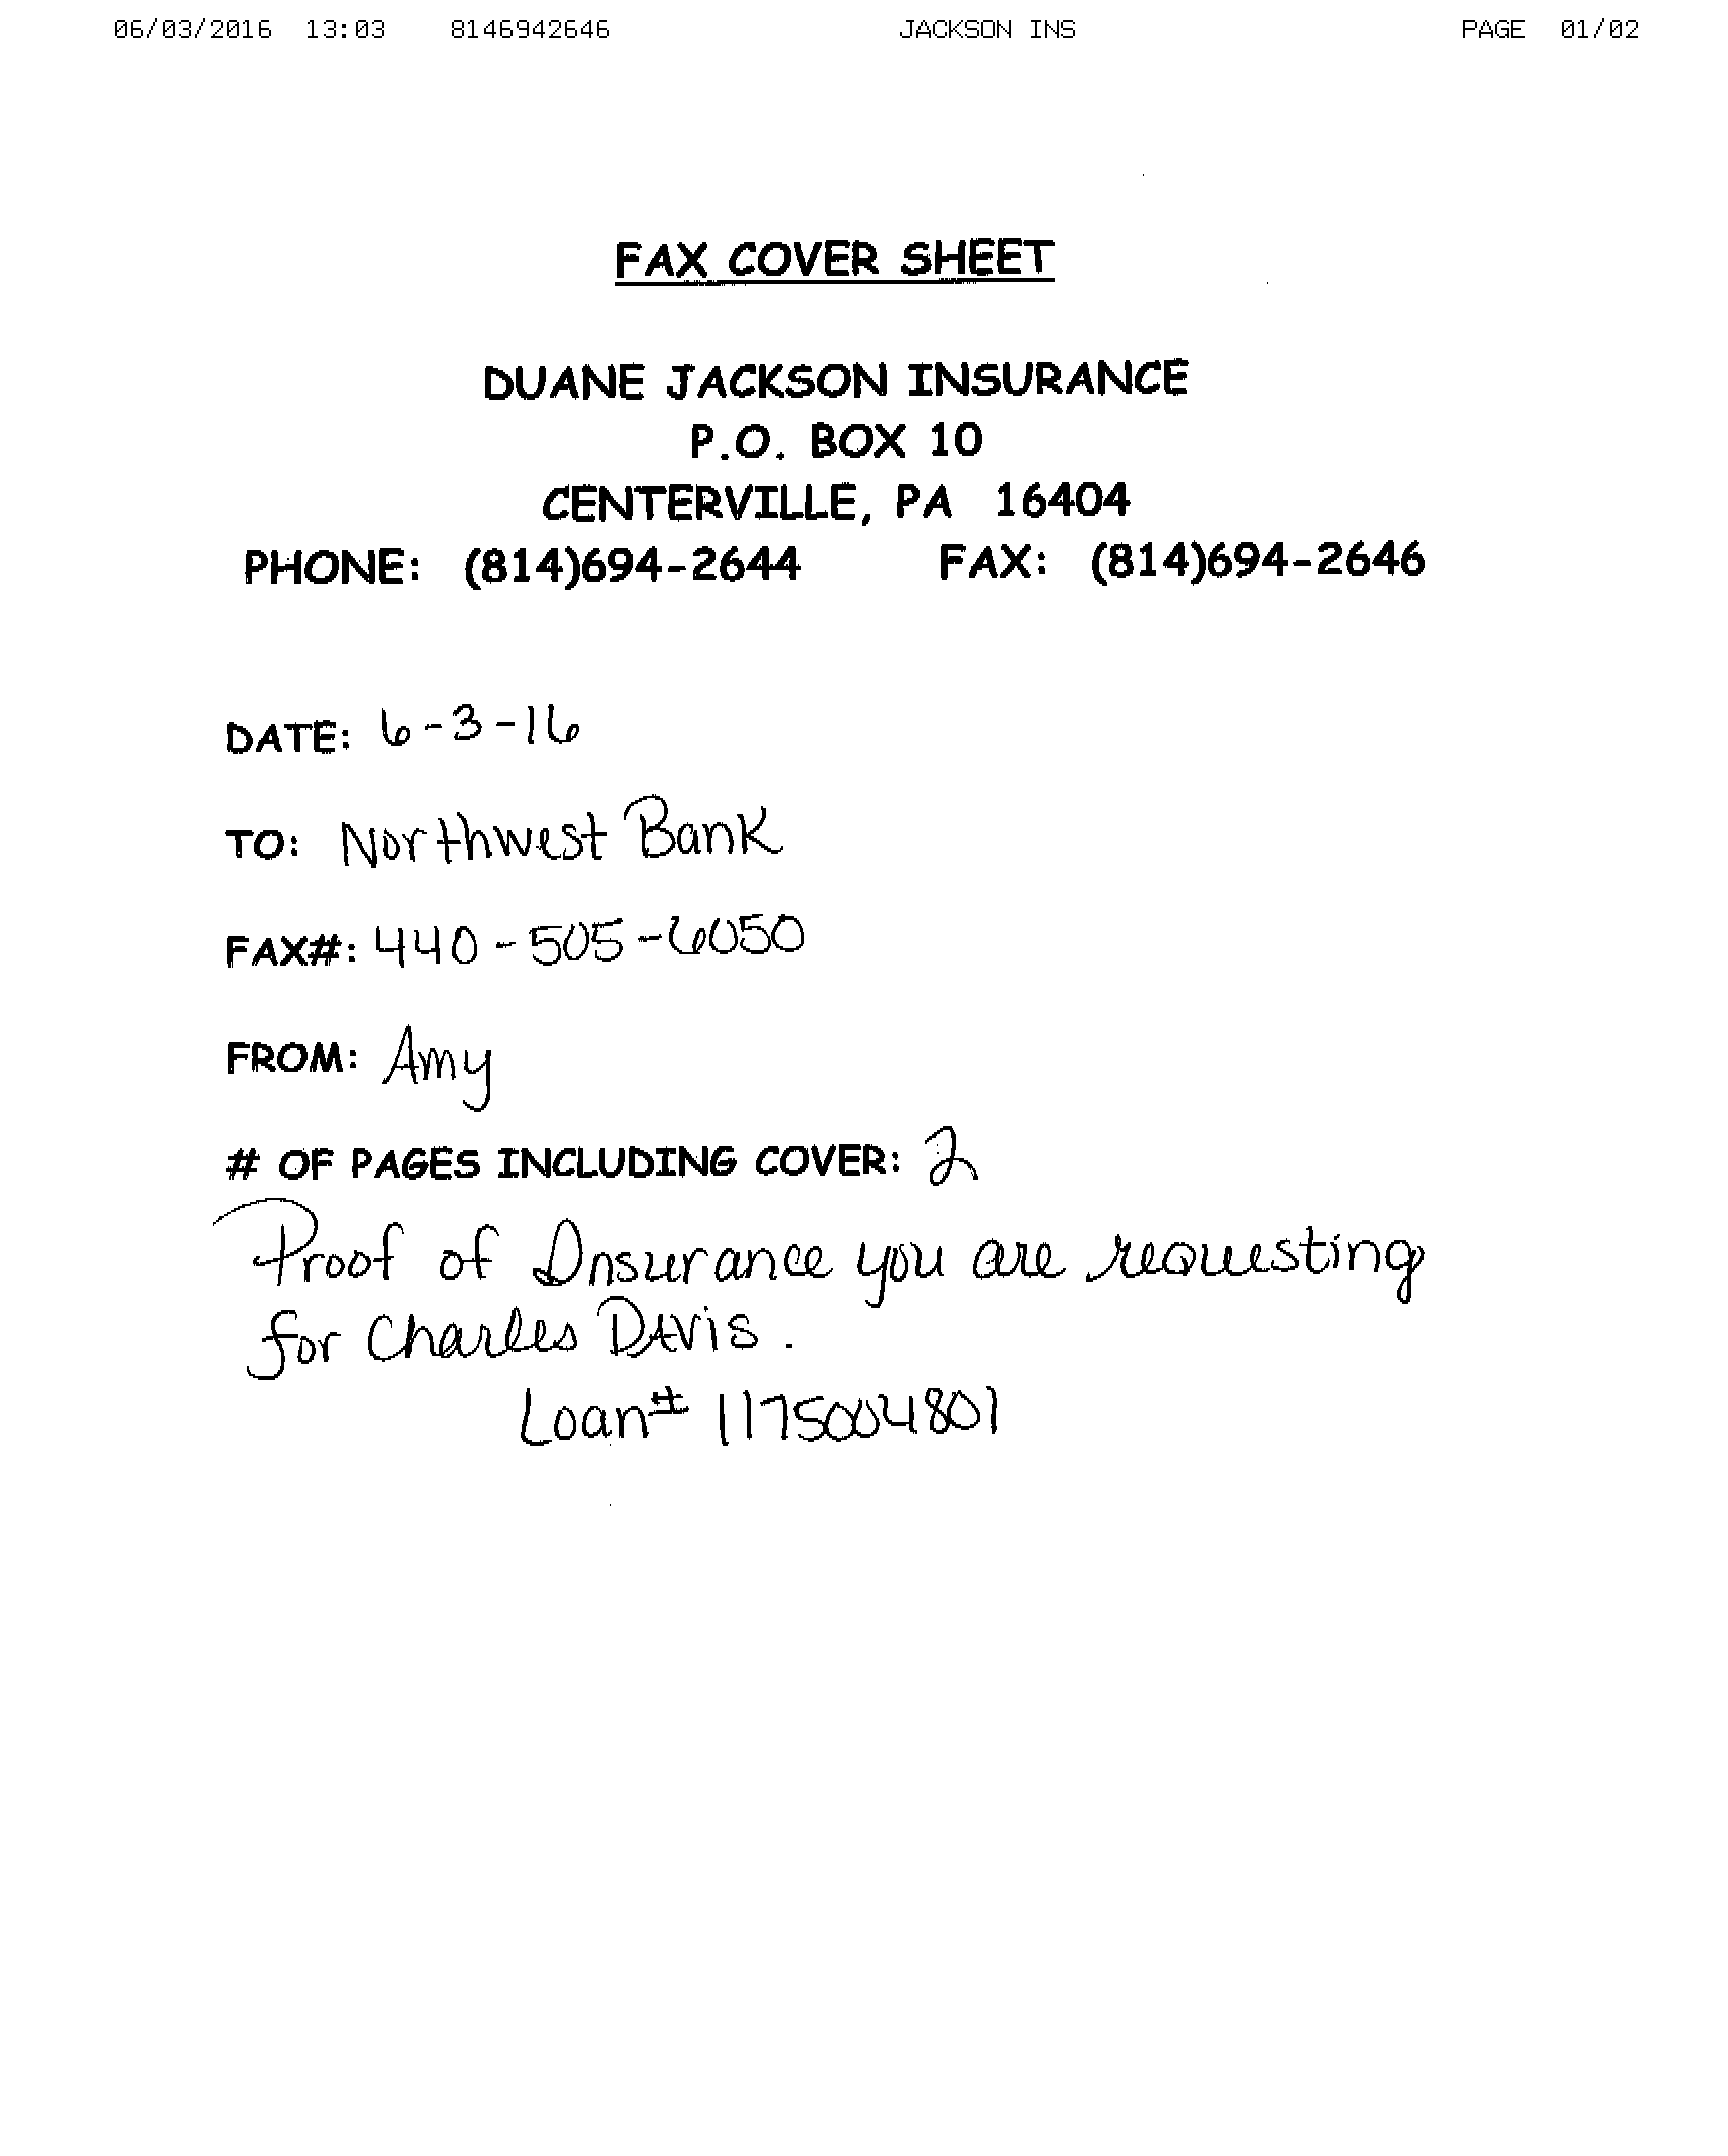 06/03/2016 13:03 8146942646 JACKSON INS PAGE 01/02
FAX COVER SHEET
DUANE JACKSON INSURANCE
P.O. BOX 10
CENTERVILLE, PA 16404
PHONE: (814)694-2644 FAX: (814)694-2646
DATE: 6-3-16
TO: Northwest Bank
FAX#: 440-505-6050
FROM: Amy
# OF PAGES INCLUDING COVER: 2
Proof of Insurance you are requesting
for Charles Davis.
Loan# 1175004801